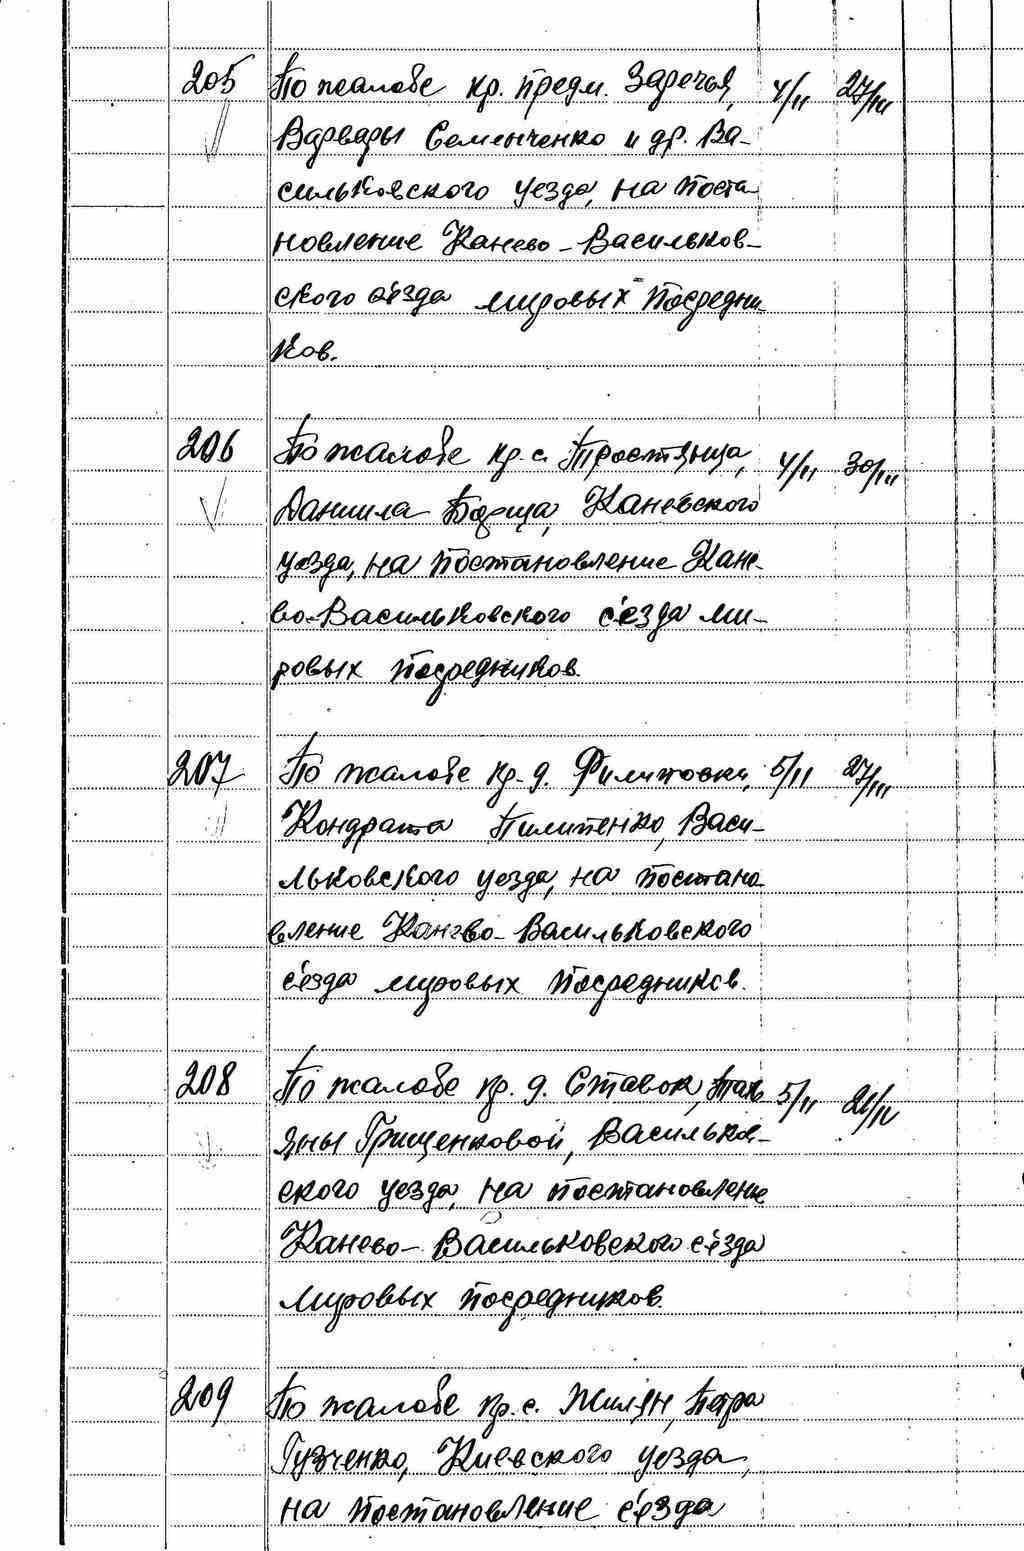 205 По жалобе кр. предм. Заречья, 4/II 27/III
Варвары Семенченко и др. Ва-
сильковского уезда, на поста-
новление Канево-Васильков-
ского с'езда мировых посредни-
ков.
206 По жалобе кр. с. Тростянца, 4/II 30/III
Даниила Борща, Каневского
уезда, на постановление Кане-
во-Васильковского с'езда ми-
ровых посредников.
207 По жалобе кр. д. Филиповки, 5/II 27/III
Кондрата Пилипенко, Васи-
льковского уезда, на постано-
вление Канево-Васильковского
с'езда мировых посредников.
208 По жалобе кр. д. Ставок, Тать 5/II 21/IV
яны Грищенковой, Васильков-
ского уезда, на постановление
Канево-Васильковского с'езда
мировых посредников.
209 По жалобе кр. с. Жилян, Петра
Гузченко, Киевского уезда,
на постановление с'езда